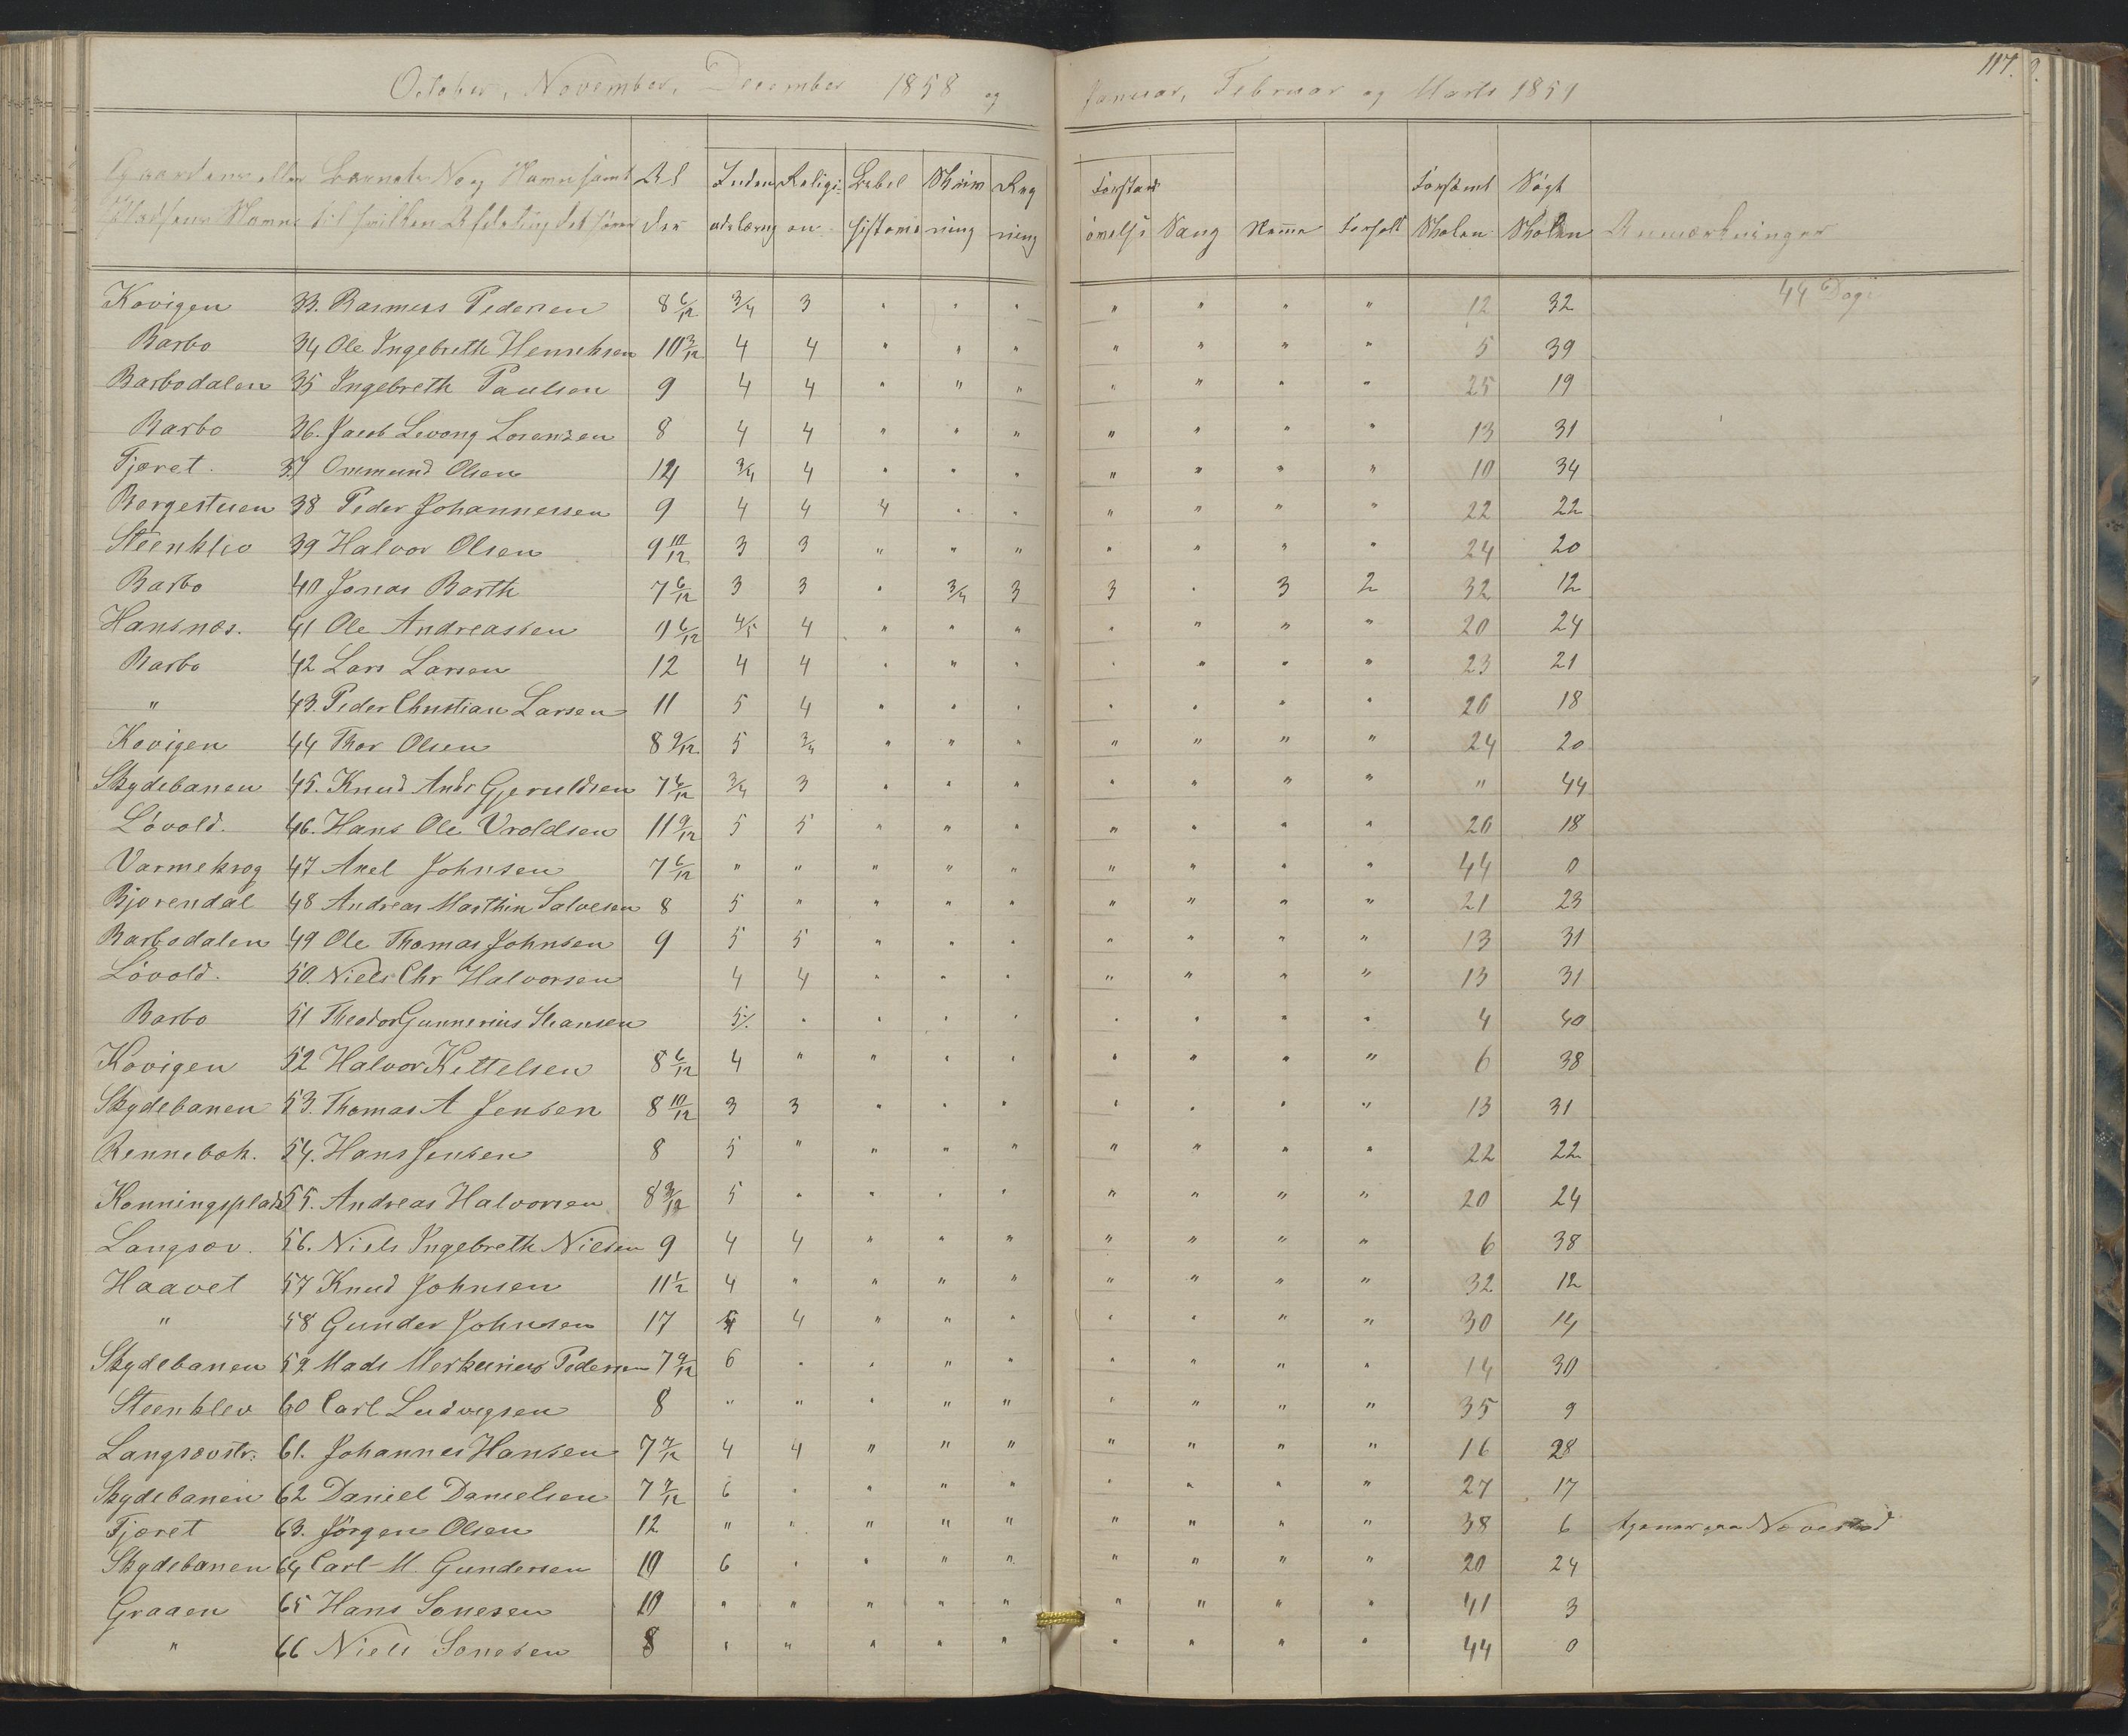 117.
October, November, December 1858 og Januar, Februar og Marts 1859
Gaardens eller Barnets No og Navn samt Al Inden Religi- Bibel Skriv Reg Forstands Forsømt Søgt
Pladsens Navn til hvilken Afdeling det hører der adslæsng on historie ning ning øvelse Sang Nemme Forhold Skolen Skolen Anmærkninger
44 Dage
Kovigen 33. Rasmus Pedersen 8 6/12 3/4 3 " " " " " " " 12 32
Barbo 34 Ole Ingebreth Henriksen 10 3/12 4 4 " " " " " " " 5 39
Barbodalen 35 Ingebreth Paulsen 9 4 4 " " " " " " " 25 19
Barbo 36. Jacob Levong Lorenzen 8 4 4 " " " " " " " 13 31
Fjæret. 37 Ommund Olsen 12 3/4 4 " " " " " " " 10 34
Bergestuen 38 Peder Johannessen 9 4 4 4 " " " " " " 22 22
Steenklev 39 Halvor Olsen 9 10/12 3 3 " " " " " " " 24 20
Barbo 40 Jonas Barth 7 6/12 3 3 " 3/4 3 3 " 3 2 32 12
Hansnæs. 41 Ole Andreassen 9 6/12 4/5 4 " " " " " " " 20 24
Barbo 42 Lars Larsen 12 4 4 " " " " " " " 23 21
" 43. Peder Christian Larsen 11 5 4 " " " " " " " 26 18
Kovigen 44 Thor Olsen 8 9/12 5 3/4 " " " " " " " 24 20
Skydebanen 45. Knud Andr Gjeruldsen 7 6/12 3/4 3 " " " " " " " " 44
Løvold. 46. Hans Ole Vroldsen 11 9/12 5 5 " " " " " " " 26 18
Varmekrog 47 Axel Johnsen 7 6/12 " " " " " " " " " 44 0
Bjørendal 48 Andreas Marthin Salvesen 8 5 " " " " " " " " 21 23
Barbodalen 49 Ole Thomas Johnsen 9 5 5 " " " " " " " 13 31
Løvold. 50. Niels Chr Halvorsen 4 4 " " " " " " " 13 31
Barbo 51 Theodor Gunnerius Hansen 5 " " " " " " " " 4 40
Kovigen 52 Halvor Kittelsen 8 6/12 4 " " " " " " " " 6 38
Skydebanen 53. Thomas A Jensen 8 10/12 3 3 " " " " " " " 13 31
Rennebæk. 54. Hans Jensen 8 5 " " " " " " " " 22 22
Konningsplads 55. Andreas Halvorsen 8 3/12 5 " " " " " " " " 20 24
Langsæv. 56. Niels Ingebreth Nielsen 9 4 4 " " " " " " " 6 38
Haavet 57 Knud Johnsen 11 1/2 4 " " " " " " " " 32 12
" 58 Gunder Johnsen 17 4 4 " " " " " " " 30 14
Skydebanen 59 Mads Merkurius Pedersen 7 9/12 6 " " " " " " " " 14 30
Steenklev 60 Carl Ludvigsen 8 " " " " " " " " " 35 9
Langsævstr. 61. Johannes Hansen 7 7/12 4 4 " " " " " " " 16 28
Skydebanen 62 Daniel Danielsen 7 7/12 6 " " " " " " " " 27 17
Fjæret 63. Jørgen Olsen 12 " " " " " " " " " 38 6 tjener paa
Skydebanen 64 Carl M. Gundersen 10 6 " " " " " " " " 20 24
Graaen 65 Hans Sonesen 10 " " " " " " " " " 41 3
" 66 Niels Sonesen 8 " " " " " " " " " 44 0